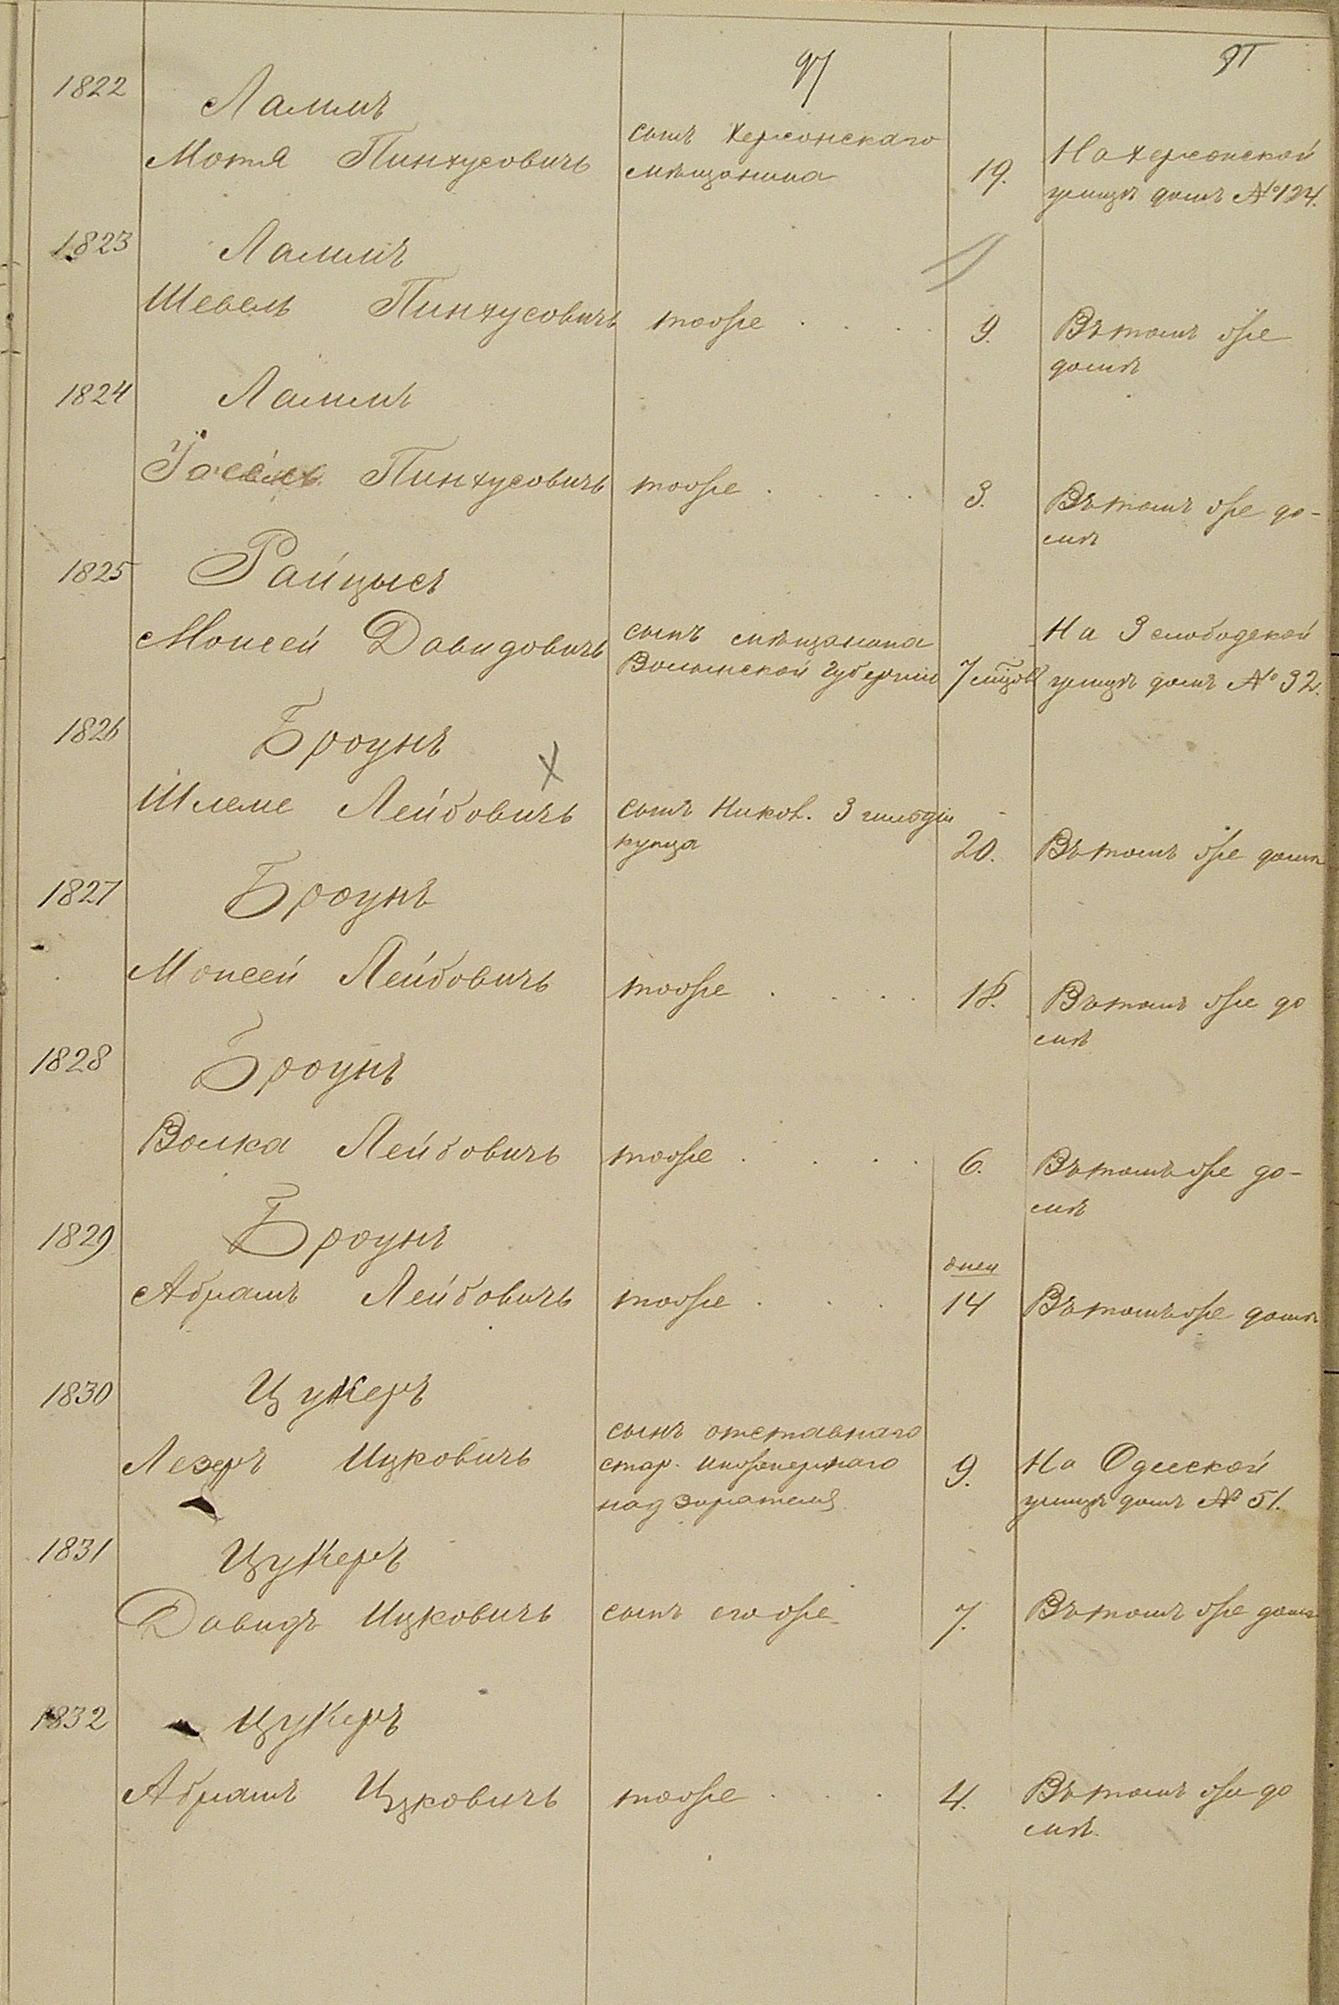 97
1822
Ламмъ
Мотя Пинхусовичъ
сынъ Херсонскаго
мѣщанина
19.
На херсонской
улицѣ домъ №124.
1823
Ламмъ
Шевель Пинхусовичъ
тоже
9.
Въ томъ же
домѣ
1824
Ламмъ
Пинхусовичъ
тоже
3.
Въ томъ же до-
мѣ
1825
Райцысъ
Моисей Давидовичъ
сынъ мѣщанина
Волынской Губерніи
7 мѣсяцов
На 3 слободской
улицѣ домъ № 32.
1826
Броунъ
Шлеме Лейбовичъ
сынъ Никол. 3 гильдіи
купца
20.
Въ томъ же домѣ
1827
Броунъ
Моисей Лейбовичъ
тоже
18.
Въ томъ же до
мѣ
1828
Броунъ
Волка Лейбовичъ
тоже
6.
Въ томъ же до-
мѣ
1829
Броунъ
Абрамъ Лейбовичъ
тоже
дней
14
Въ томъ же домѣ
1830
Цукеръ
Лезеръ Ицковичъ
сынъ отставнаго
стар. инженернаго
надзирателя
9.
На Одесской
улицѣ домъ № 51.
1831
Цукеръ
Давидъ Ицковичъ
сынъ его же
7.
Въ томъ же домѣ
1832
Цукеръ
Абрамъ Ицковичъ
тоже
4.
Въ томъ же до
мѣ.